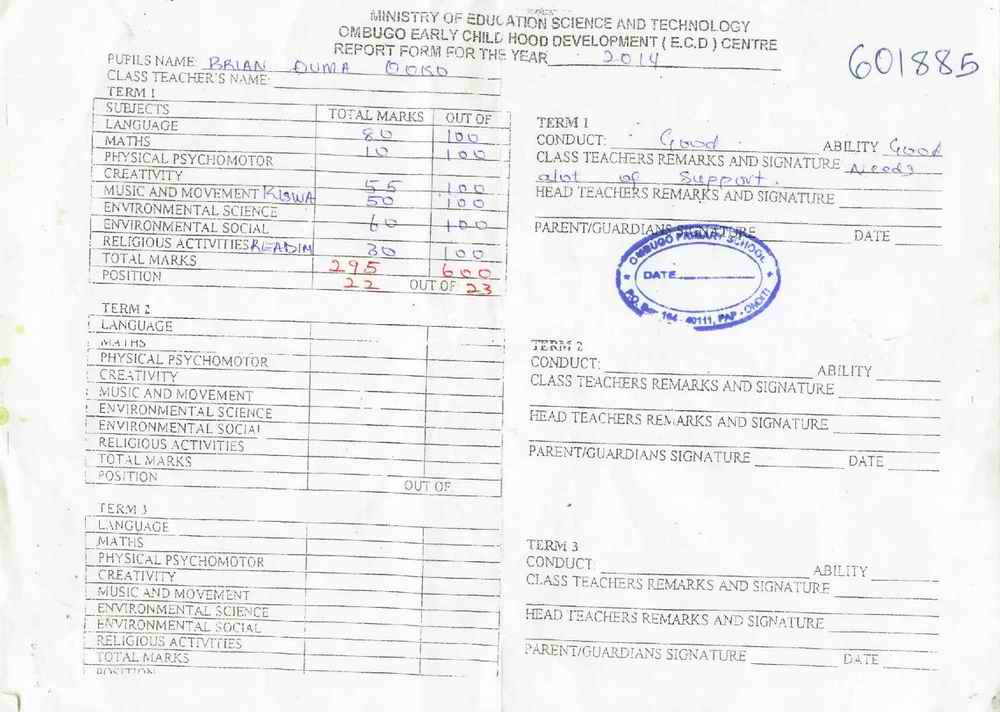 MINISTRY OF EDUCATION SCIENCE AND TECHNOLOGY
OMBUGO EARLY CHILD HOOD DEVELOPMENT ( E.C.D ) CENTRE
REPORT FORM FOR THE YEAR 2014
601885
PUPILS NAME BRIAN OUMA OOKO
CLASS TEACHER'S NAME:
TERM 1
SUBJECTS TOTAL MARKS OUT OF
LANGUAGE 80 100
MATHS 10 100
PHYSICAL PSYCHOMOTOR
CREATIVITY 55 100
MUSIC AND MOVEMENT KISWA 50 100
ENVIRONMENTAL SCIENCE
ENVIRONMENTAL SOCIAL 60 100
RELIGIOUS ACTIVITIES READIN 30 100
TOTAL MARKS 295 600
POSITION 22 OUT OF 23
TERM 2
LANGUAGE
MATHS
PHYSICAL PSYCHOMOTOR
CREATIVITY
MUSIC AND MOVEMENT
ENVIRONMENTAL SCIENCE
ENVIRONMENTAL SOCIAL
RELIGIOUS ACTIVITIES
TOTAL MARKS
POSITION OUT OF
TERM 3
LANGUAGE
MATHS
PHYSICAL PSYCHOMOTOR
CREATIVITY
MUSIC AND MOVEMENT
ENVIRONMENTAL SCIENCE
ENVIRONMENTAL SOCIAL
RELIGIOUS ACTIVITIES
TOTAL MARKS
POSITION
TERM 1
CONDUCT: Good ABILITY Good
CLASS TEACHERS REMARKS AND SIGNATURE Needs
alot of Support.
HEAD TEACHERS REMARKS AND SIGNATURE
PARENT/GUARDIANS SIGNATURE DATE
OMBUGO PRIMARY SCHOOL
DATE
164 - 40111, PAP - ONDITI
TERM 2
CONDUCT: ABILITY
CLASS TEACHERS REMARKS AND SIGNATURE
HEAD TEACHERS REMARKS AND SIGNATURE
PARENT/GUARDIANS SIGNATURE DATE
TERM 3
CONDUCT: ABILITY
CLASS TEACHERS REMARKS AND SIGNATURE
HEAD TEACHERS REMARKS AND SIGNATURE
PARENT/GUARDIANS SIGNATURE DATE